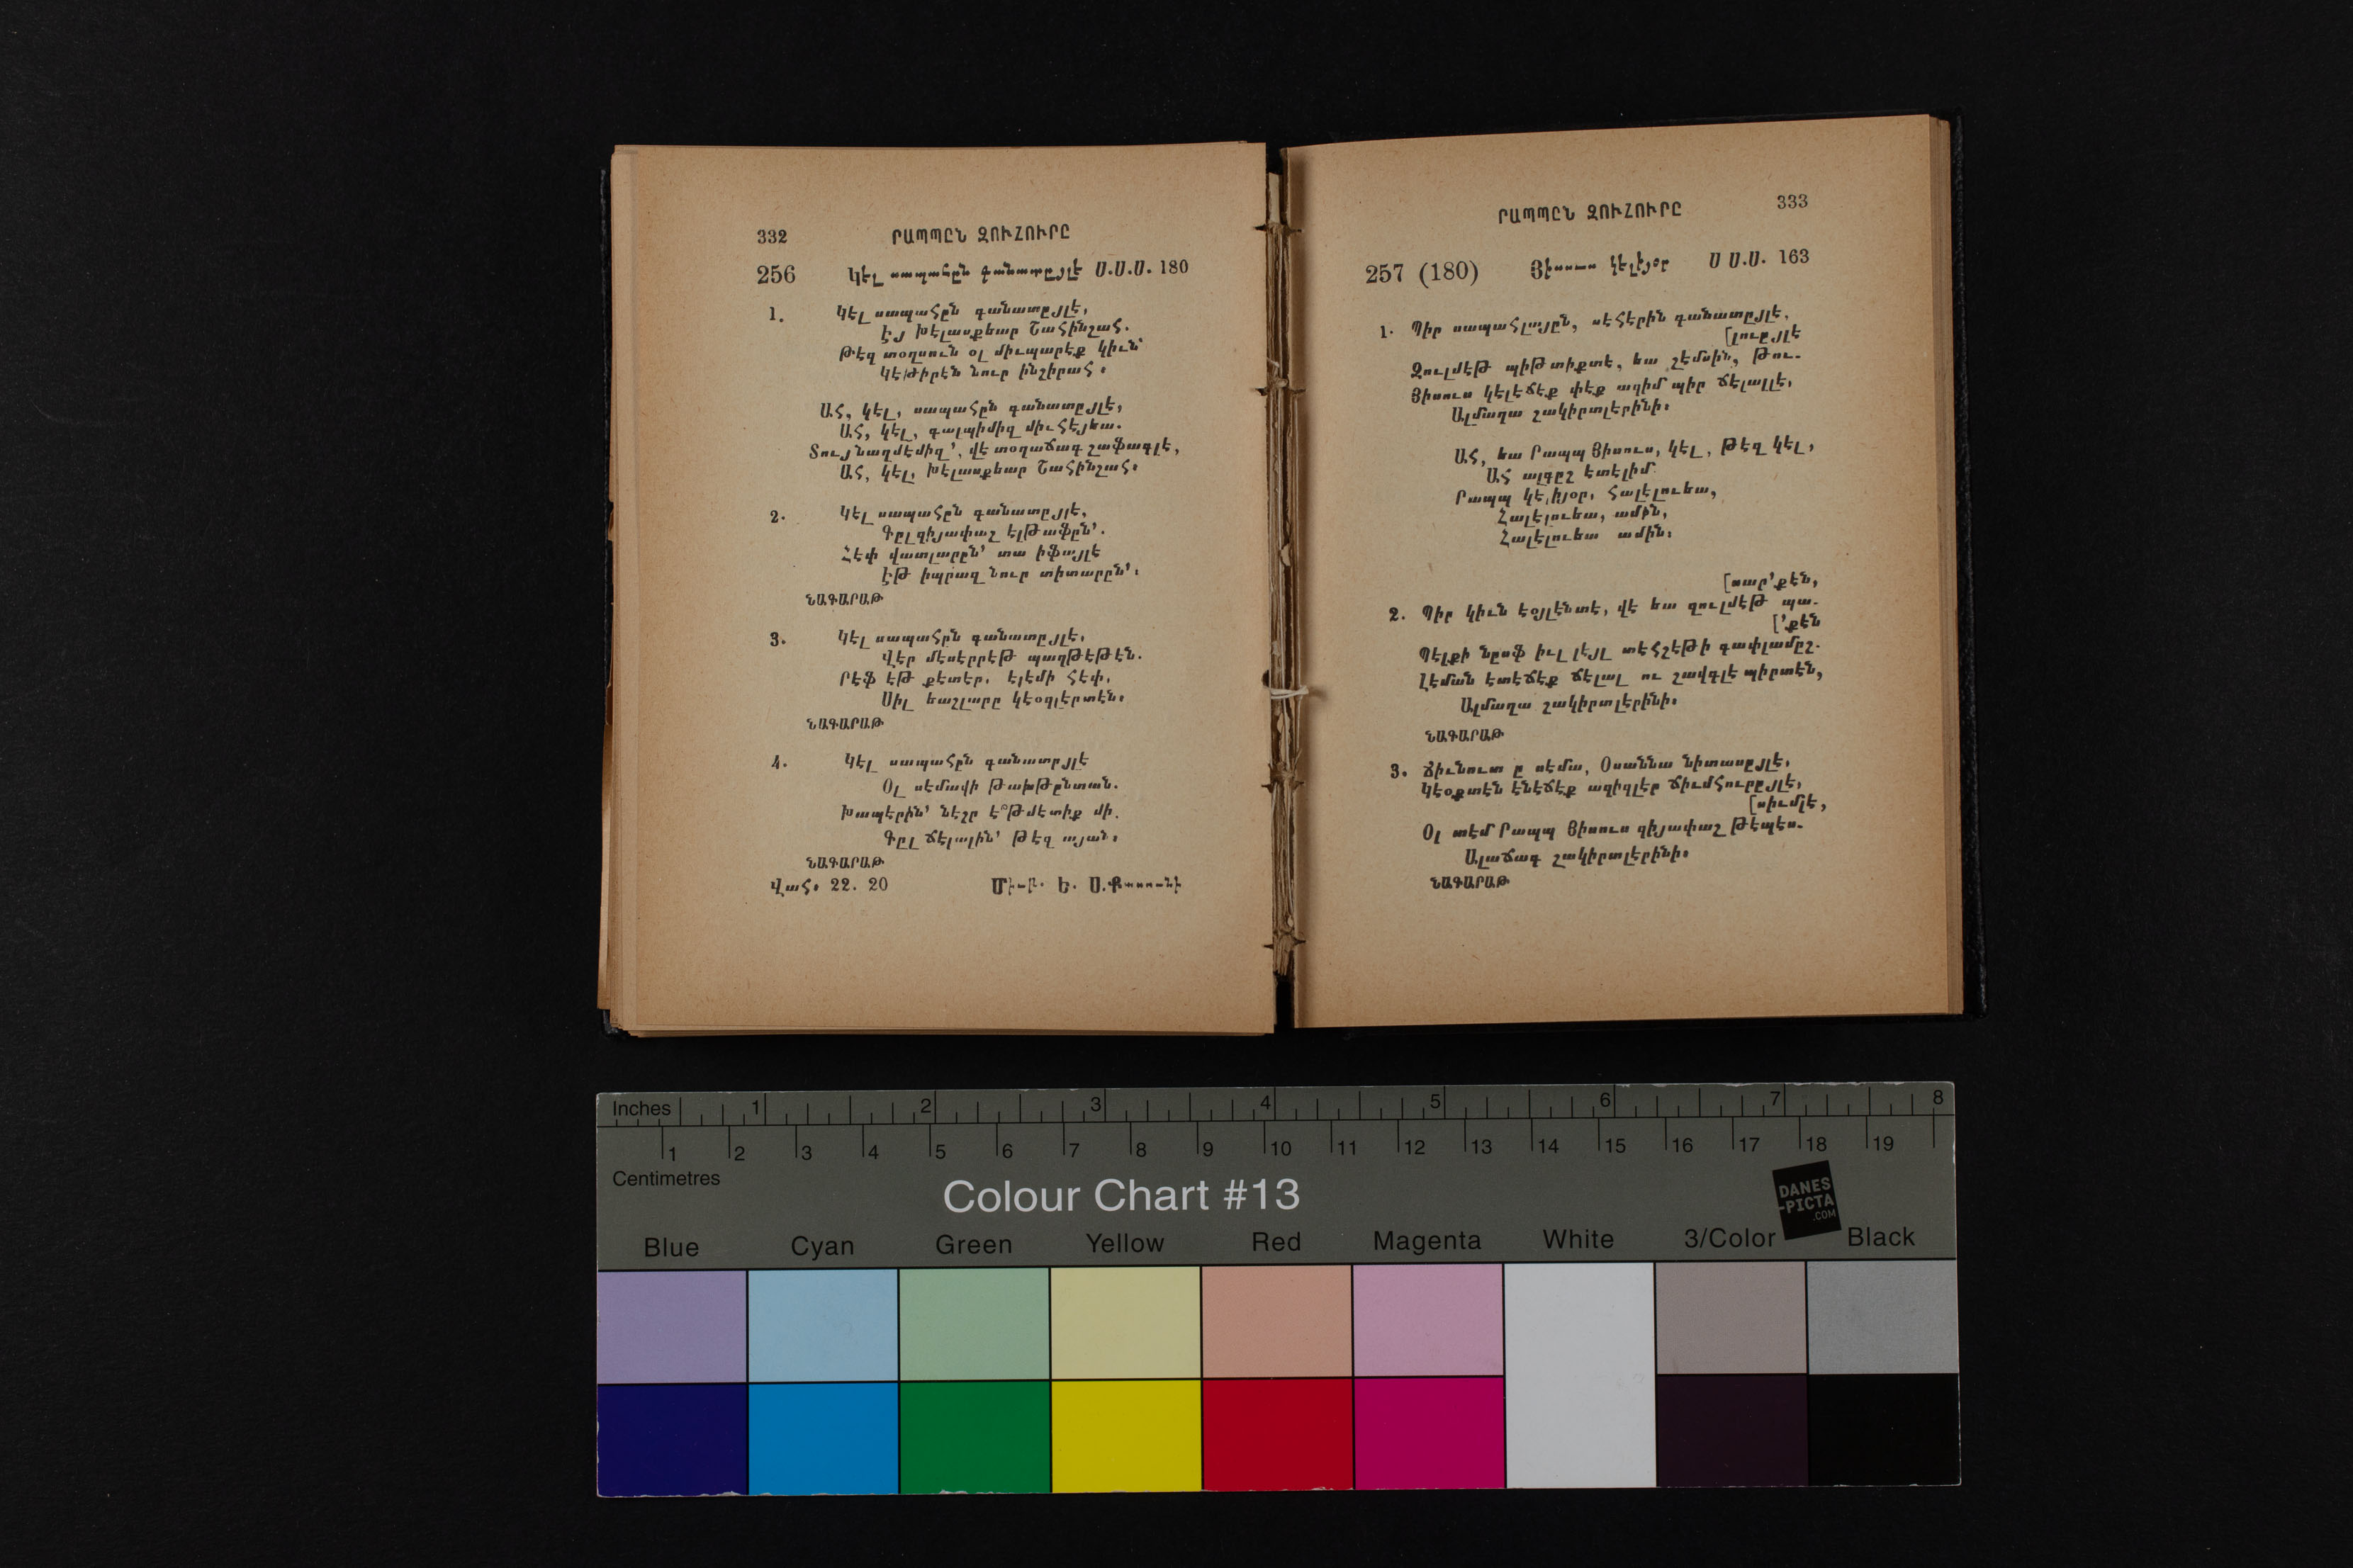 332 ՐԱՊՊԸՆ ԶՈՒՀՈՒՐԸ
256 Կէլ սապահըն գանատըյլէ Ս.Ս.Ս. 180
1. Կէլ սապահըն գանատըյլէ,
Էյ խէլասքեար Շահինշահ.
Թէզ տօղսուն օլ միւպարէք կիւն՝
Կէթիրէն նուր ինշիրահ։
Ահ, կէլ, սապահըն գանատըյլէ,
Ահ, կէլ, գալպիմիզ միւհէյեա.
Տույնաղմէմիզ՚, վէ տօղաճագ շաֆագլէ,
Ահ, կէլ, խէլասքեար Շահինշահ։
2. Կէլ սապահըն գանատըյլէ,
Գըլ զիյափաշ էլթաֆըն՚.
Հէփ վատլարըն՚ տա իֆայլէ
Էթ իպրազ նուր տիտարըն՚։
ՆԱԳԱՐԱԹ
3. Կէլ սապահըն գանատըյլէ,
Վէր մէսէրրէթ պաղթէթէն.
Րէֆ էթ քէտէր, էլէմի հէփ,
Սիլ եաշլարը կէօզլէրտէն։
ՆԱԳԱՐԱԹ
4. Կէլ սապահըն գանատըյլէ
Օլ սէմավի թախթընտան.
Խապէրին՚ նէշր է՞թմէտիք մի.
Գըլ ճէլալին՚ թէզ այան։
ՆԱԳԱՐԱԹ
Վահ։ 22. 20
ՐԱՊՊԸՆ ԶՈՒՀՈՒՐԸ 333
257 (180) Յիսուս կէլիյօր Ս Ս.Ս. 163
1. Պիր սապահլայըն, սէհէրին գանատըյլէ,
[լուըյլէ
Զուլմէթ պիթտիքտէ, եա շէմսին, թու-
Յիսուս կէլէճէք փէք ազիմ պիր ճէլալլէ,
Ալմաղա շակիրտլէրինի։
Ահ, եա Րապպ Յիսուս, կէլ, թէզ կէլ,
Ահ ալգըշ ետէլիմ
Րապպ կէլիյօր, հալէլուեա,
Հալէլուեա, ամին,
Հալէլուեա ամին։
[սար՚քէն,
2. Պիր կիւն էօյլէնտէ, վէ եա զուլմէթ պա-
[՚քէն
Պէլքի նըսֆ իւլ լէյլ տէհշէթի գափլամըշ-
Լէման ետէճէք ճէլալ ու շավգլէ պիրտէն,
Ալմաղա շակիրտլէրինի։
ՆԱԳԱՐԱԹ
3. Ճիւնուտ ը սէմա, Օսաննա նիտասըյլէ,
Կէօքտէն էնէճէք ազիզլէր ճիւմհուրըյլէ,
[սիւմլէ,
Օլ տէմ Րապպ Յիսուս զիյափաշ թէպէս-
Ալաճագ շակիրտլէրինի։
ՆԱԳԱՐԱԹ
Inches 1 2 3 4 5 6 7 8
1 2 3 4 5 6 7 8 9 10 11 12 13 14 15 16 17 18 19
Centimetres
Colour Chart #13
DANES
-PICTA
.COM
Blue Cyan Green Yellow Red Magenta White 3/Color Black